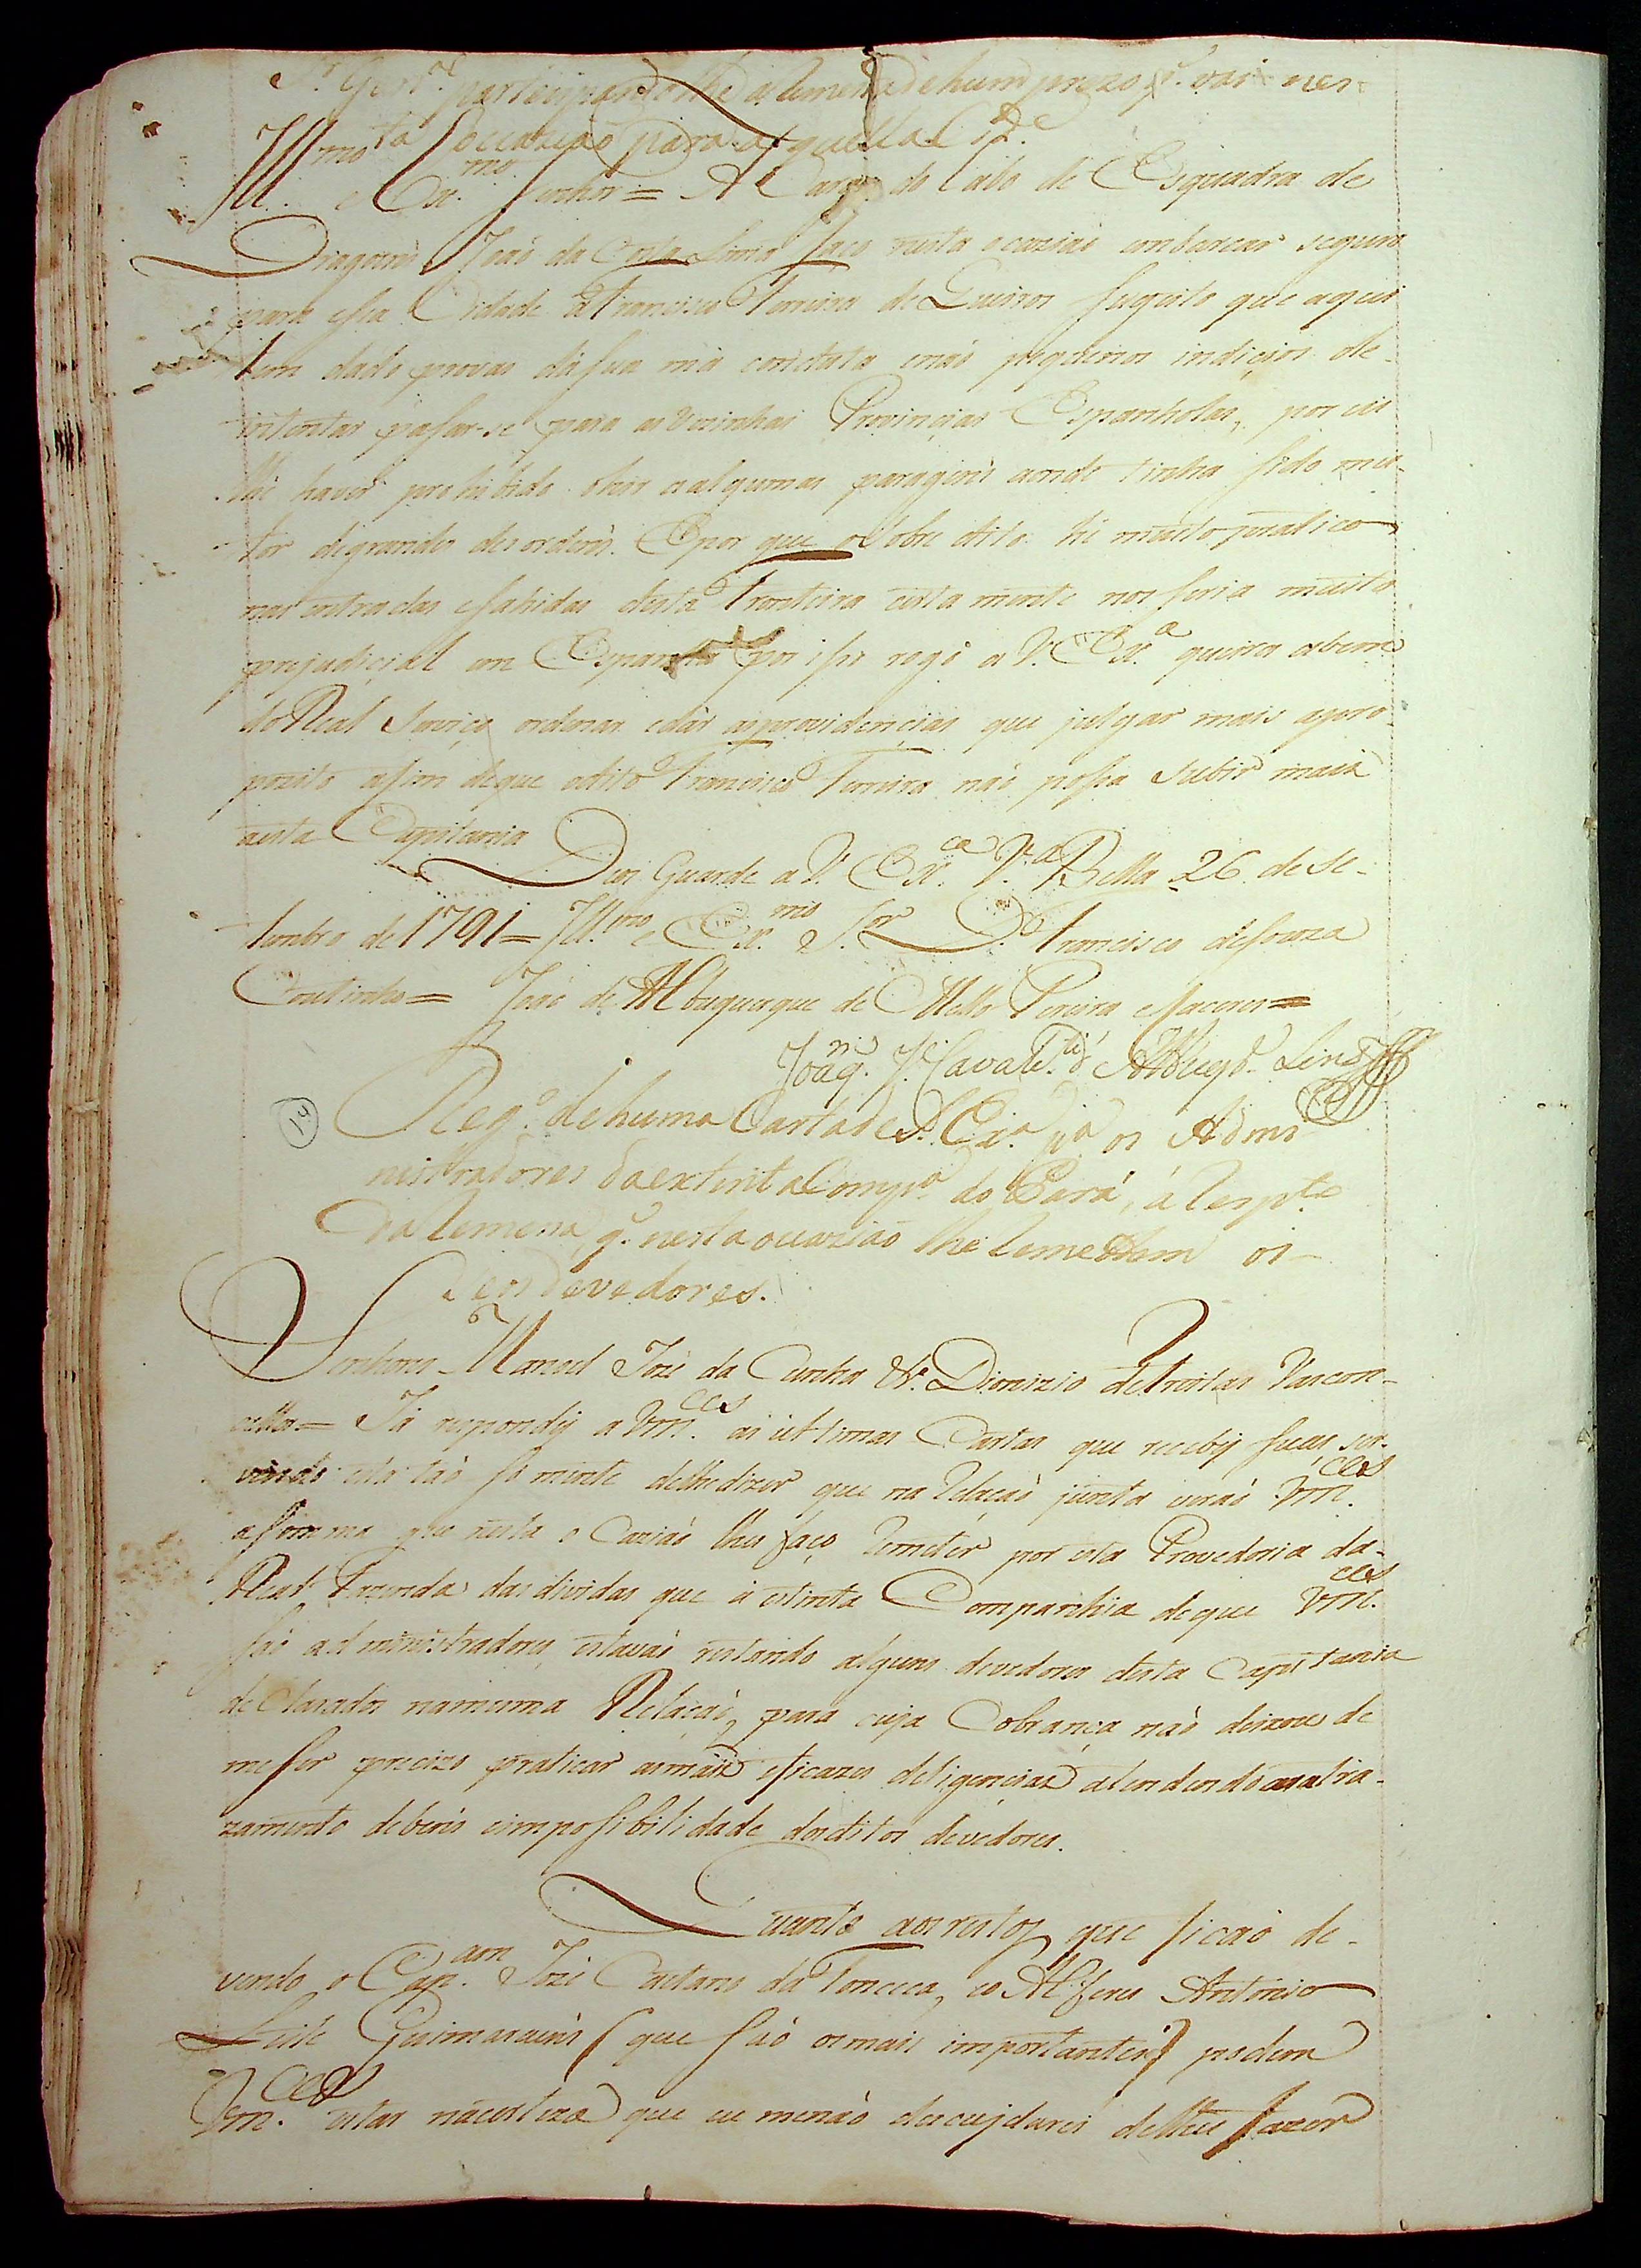 S.r Gen.al participandolhe a Remessa de hum prezo q.' vai nes-
ta occazião para aquella Cid.e
Ill.mo e Ex.mo Senhor = A Cargo do Cabo de Esquadra de
Dragoens João da Costa Lima faço nesta ocazião embarcar seguro
para essa Cidade a Francisco Ferreira de sugeito que aqui
tem dado provas da sua má conduta enão pequenos indiçios de-
intentar pasar-se para as vizinhas Provinçias Espanholas, por eu
lhe haver prohibido o hir a algumas paragens aonde tinha sido mo-
tor degrandes desordens. Epor que o sobre dito hé muito pratico
nas entradas esahidas desta Fronteira certa mente nos seria muito
prejudiçial em Espanha por isso rogo a V. Ex.a queira abem
do Real Serviço ordenar edár asprovidençias que julgar mais apro-
pozito afim deque odito Francisco Ferreira não possa subir mais
aesta Capitania
Deos Guarde a V. Ex.ca V.a Bella 26 de Se-
tembro de 1791 = Ill.mo e Ex.mo S.or D. Francisco deSouza
Coutinho = João de Albuquerque de Mello Pereira eCaceres =
Joaq.m J.e Cavalc.ti d' Albuq.e Lins
14
Reg.o dehuma Carta de S. Ex.a p.a os Admi
nistradores da extinta Comp.a do Pará, á Resp.to
Da Remessa, q.' nesta occazião lhe Remettem os-
Seus Devedores.
Senhores Manoel Jozé da Cunha & Dionizio deFreitas Vascon-
cellos = Já respondy a Vm.ces as ultimas Cartas que reçeby suas, ser-
vindo esta tão só mente delhedizer que na Relação junta verão Vm.ces
asomma que nesta o Cazião lhes faço Remeter por esta Provedoria da-
Real Fazenda das dividas que á extinta Companhia deque Vm.ces
são administradores, estavão restando alguns devedores desta Capitania
deClarados namesma Relação, para cuja Cobrança não deixou de
meser precizo praticar asmais eficazes deligençias atendendo aoatra-
zamento debens eimposibilidade dosditos devedores.
Quanto aosrestos que ficão de-
vendo o Cap.am Jozé Caetano da Fonceca, eo Alferes Antonio
Leite Guimaraens (que são osmais importantes) podem
Vm.ces estar nacerteza que eu menão descuydarei delhes fazer